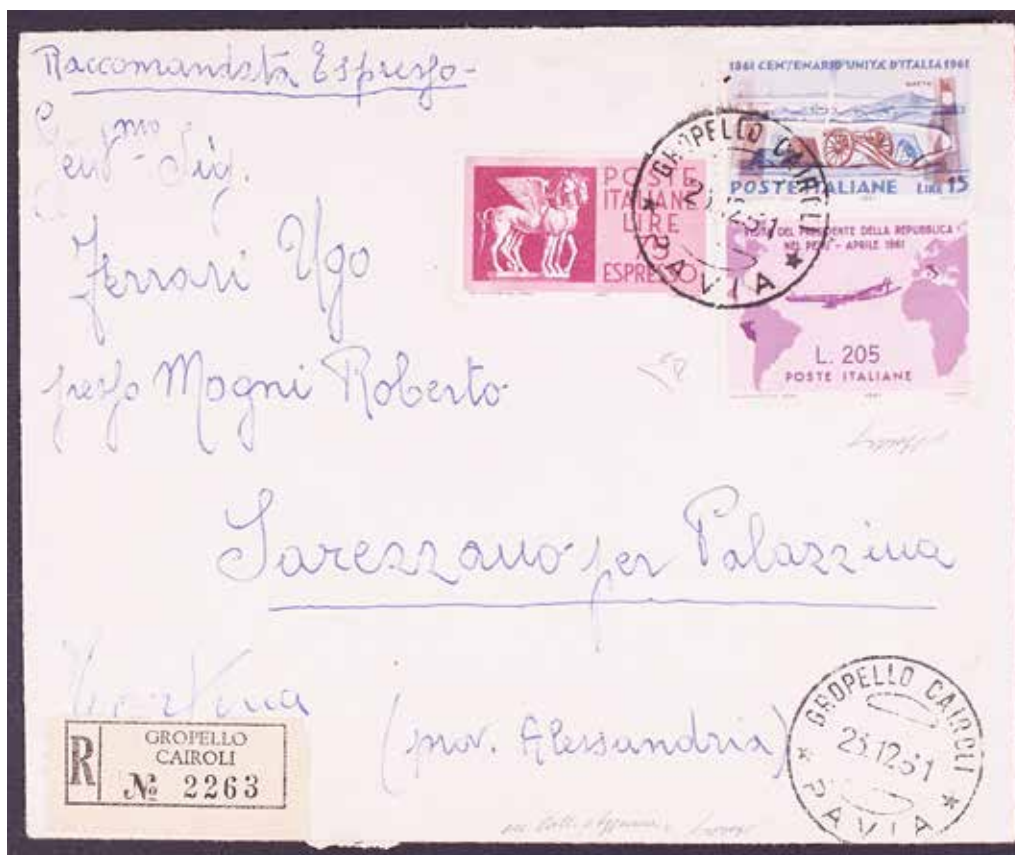 Raccomandata Espresso-
Sig.
Ferrari Ugo
presso Mogni Roberto
Sarezzano per Palazzina
(prov. Alessandria)
1861 CENTENARIO UNITÀ D'ITALIA 1961
GAETA
POSTE ITALIANE LIRE 15
POSTE
ITALIANE
LIRE
75
ESPRESSO
VISITA DEL PRESIDENTE DELLA REPUBBLICA
NEL PERU' - APRILE 1961
L. 205
POSTE ITALIANE
GROPELLO CAIROLI
23.12.61
* PAVIA *
R
GROPELLO
CAIROLI
№ 2263
GROPELLO CAIROLI
23.12.61
* PAVIA *